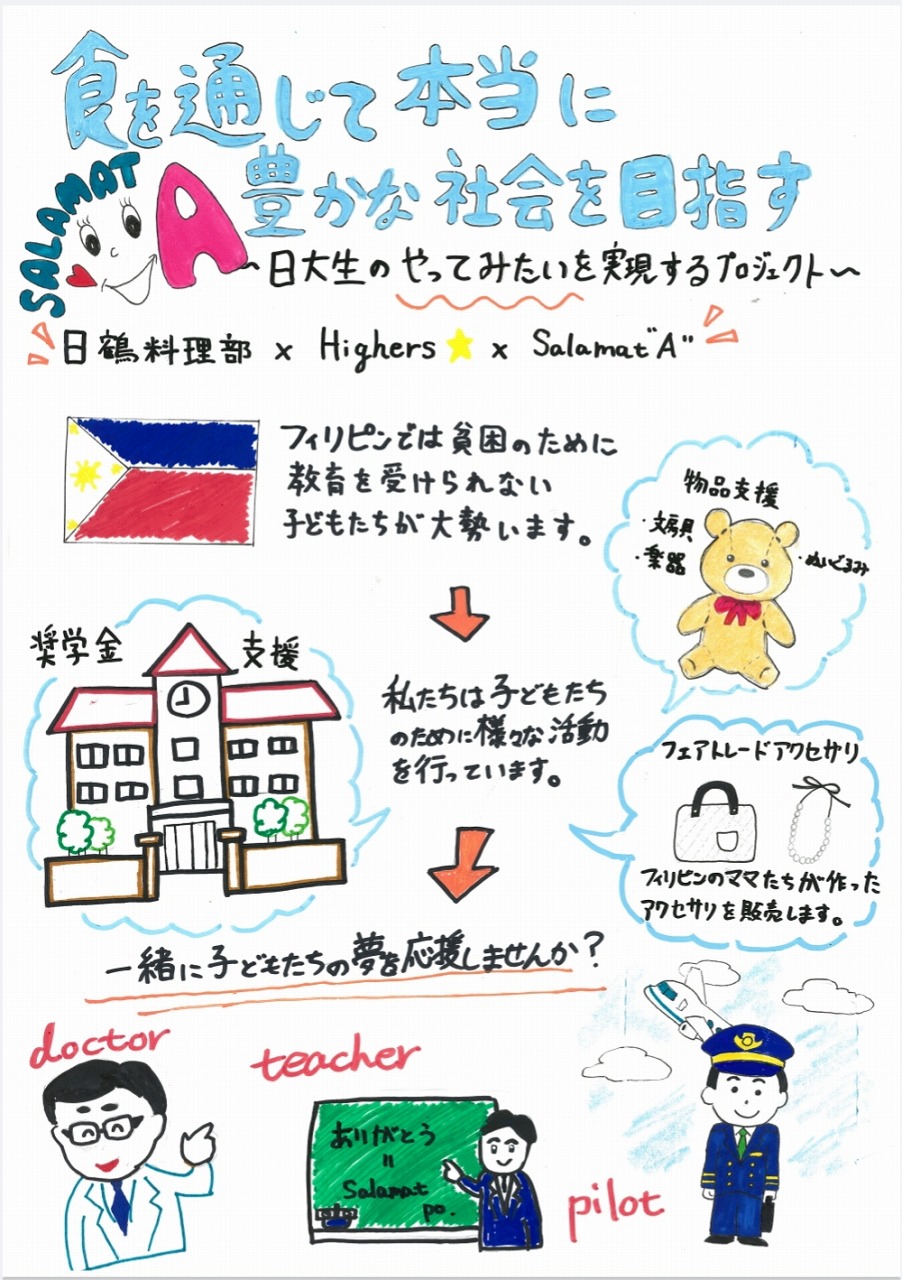 食を通じて本当に
豊かな社会を目指す
SALAMAT A
～日大生のやってみたいを実現するプロジェクト～
日鶴料理部 x Highers x Salamat"A"
フィリピンでは貧困のために
教育を受けられない
子どもたちが大勢います。
物品支援
・文房具
・楽器
・ぬいぐるみ
奨学金支援
私たちは子どもたち
のために様々な活動
を行っています。
フェアトレードアクセサリ
フィリピンのママたちが作った
アクセサリを販売します。
一緒に子どもたちの夢を応援しませんか？
doctor
teacher
ありがとう
=
Salamat
po.
pilot